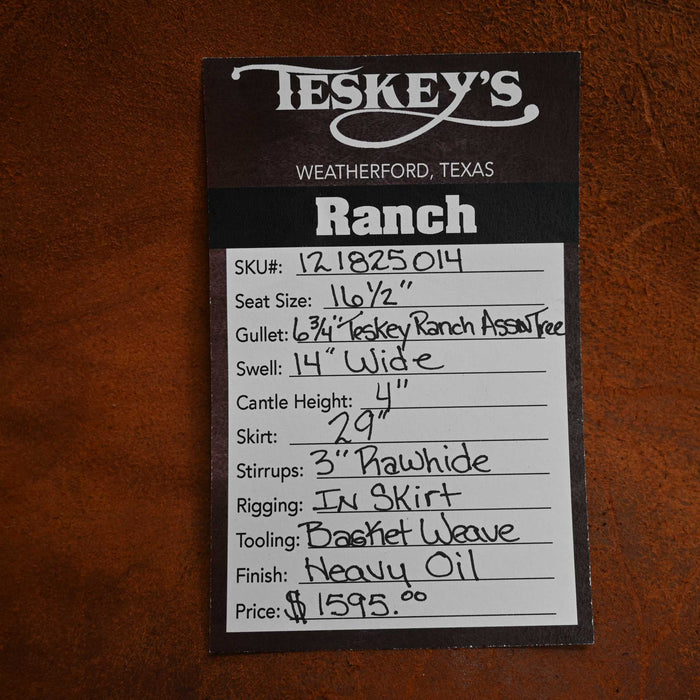 TESKEY'S
WEATHERFORD, TEXAS
Ranch
SKU#: 121825014
Seat Size: 16 1/2"
Gullet: 6 3/4" Teskey Ranch Assn Tree
Swell: 14" Wide
Cantle Height: 4"
Skirt: 29"
Stirrups: 3" Rawhide
Rigging: In Skirt
Tooling: Basket Weave
Finish: Heavy Oil
Price: $1595.00